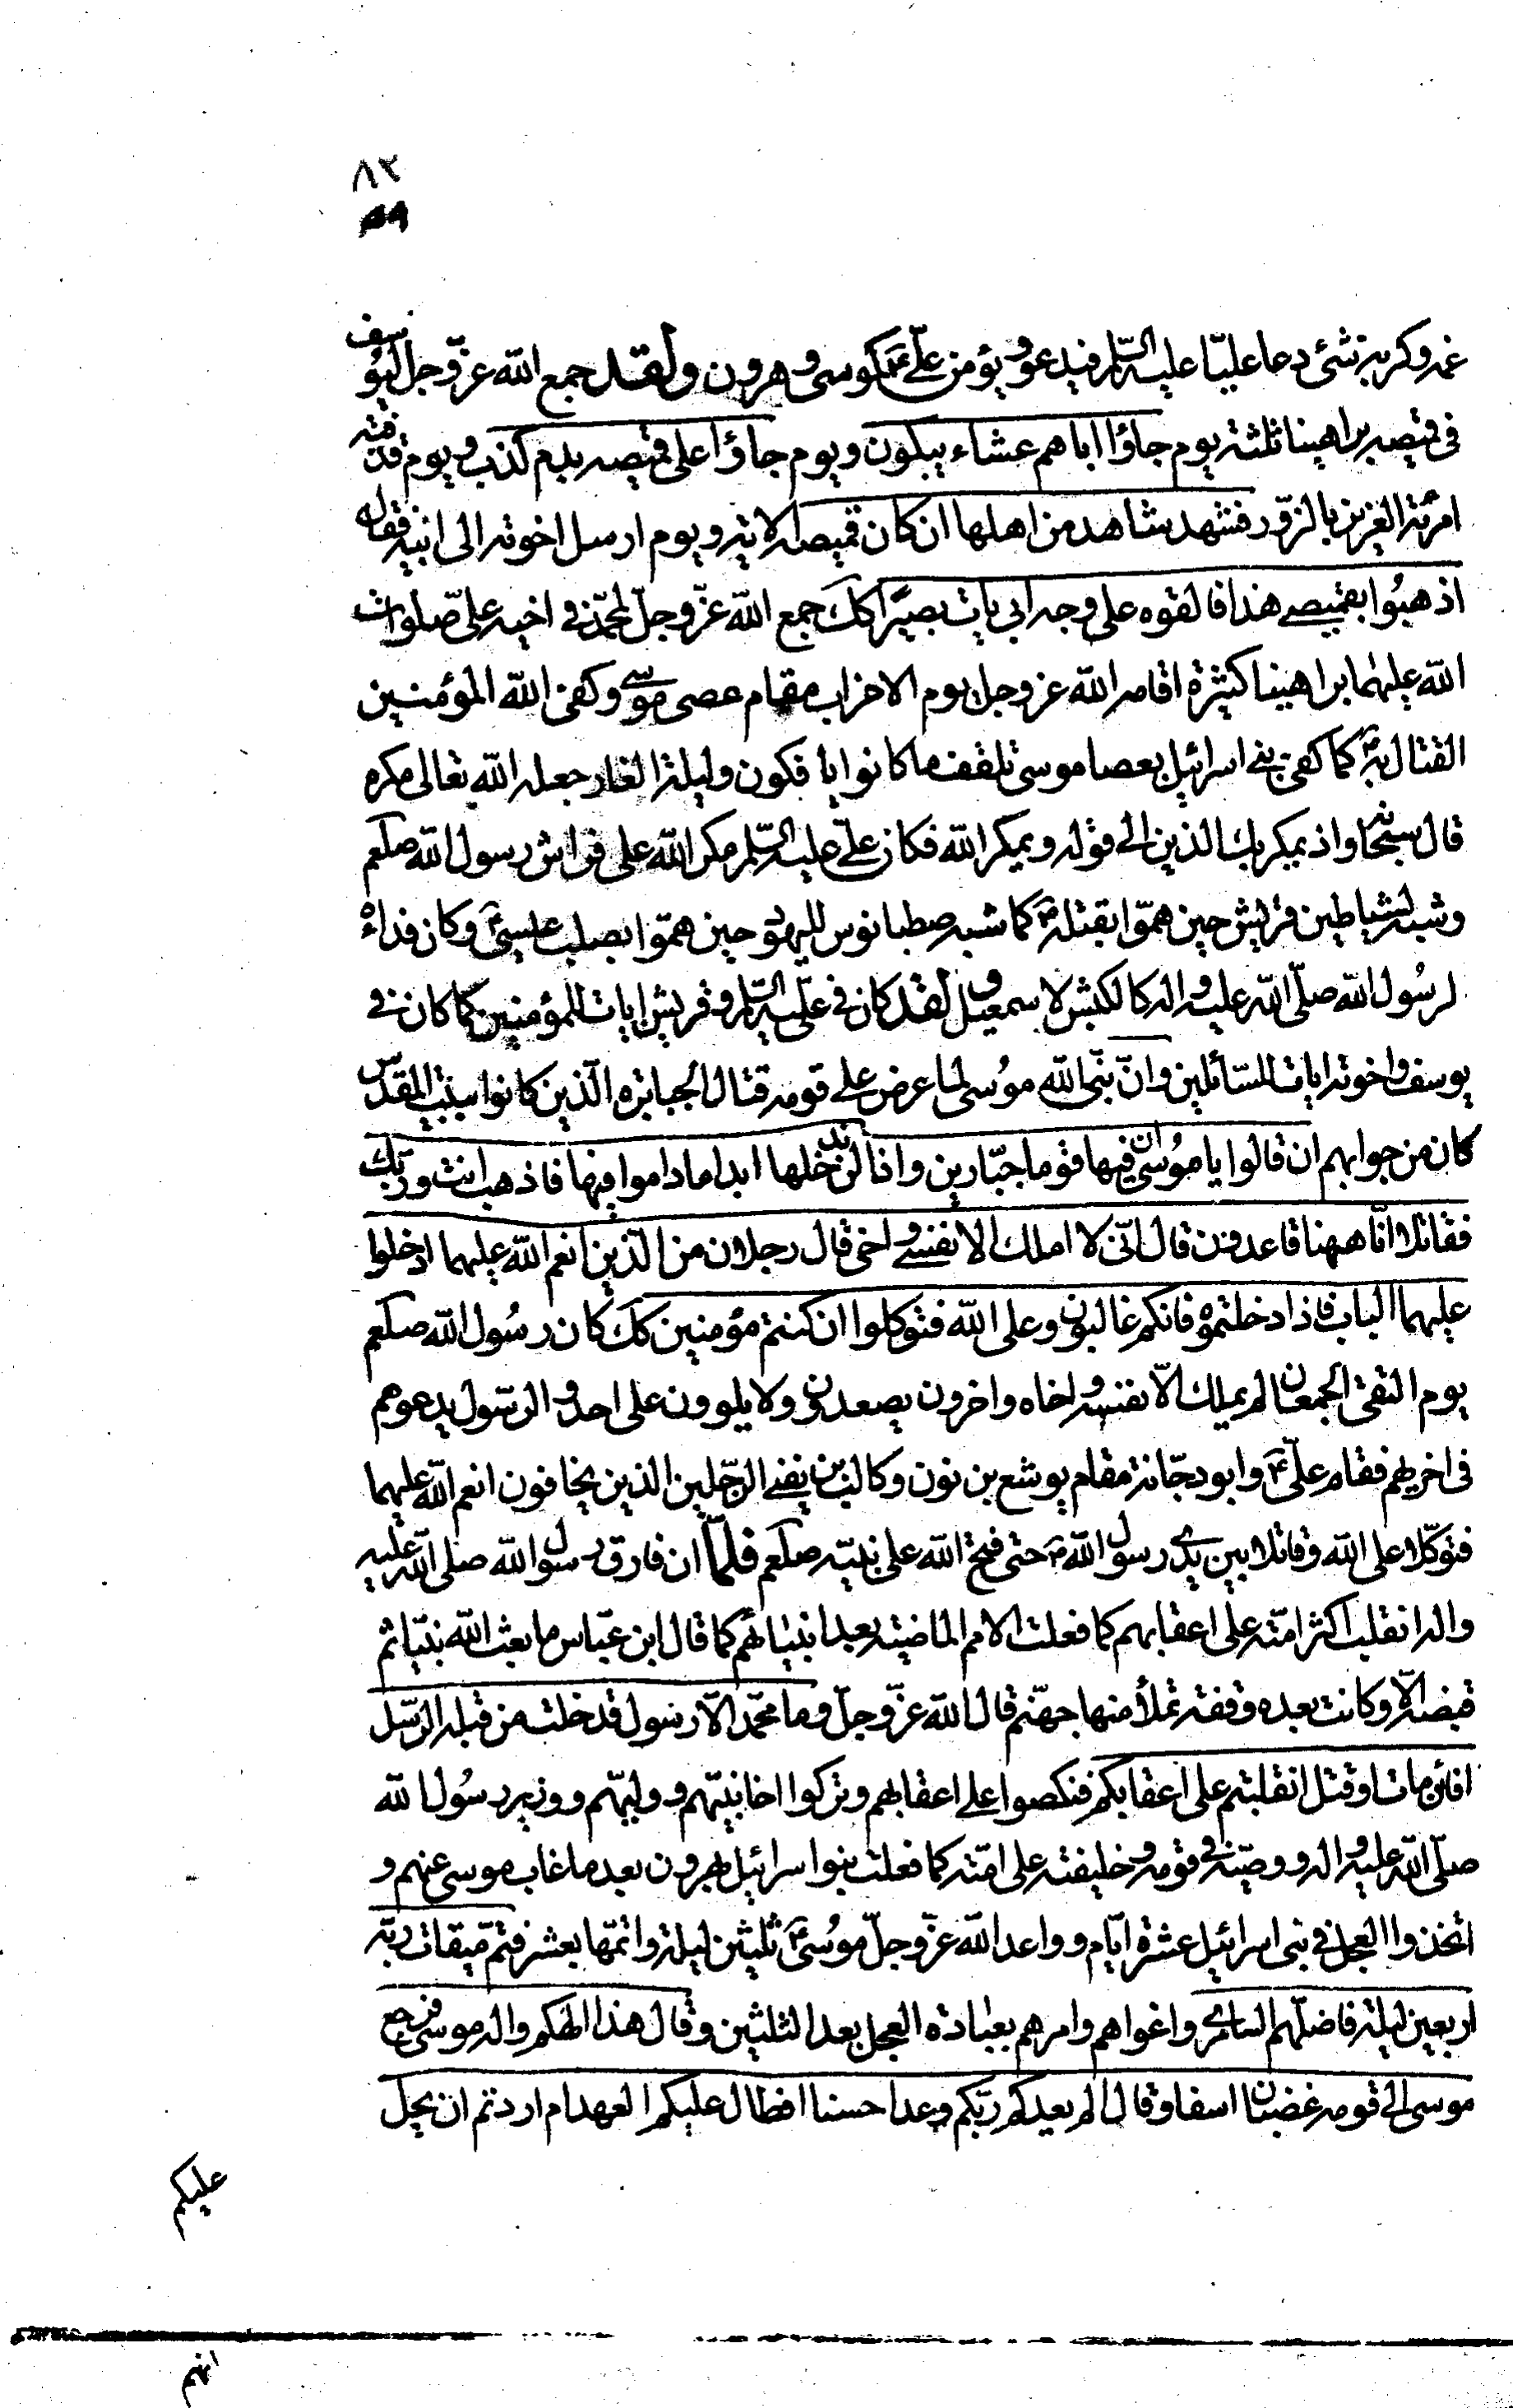 ٨٢
٨٩
غمه وكربه بشئ دعا عليّا عليه السّلم فيدعو ويؤمن علىّ ع كموسى وهرون ولقد جمع الله عزّ وجل ليوسف
فى قميصه براهينا ثلثة يوم جاؤا اباهم عشاء يبكون ويوم جاؤا على قميصه بدم كذب ويوم قذفته
امرئة العزيز بالزّور فشهد شاهد من اهلها ان كان قميصه الاية ويوم ارسل اخوته الى ابيه فقال
اذهبُوا بقميصى هذا فالقوه على وجه ابى يات بصيرًا كك جمع الله عزّ وجلّ لمحمّد فى اخيه علىّ صلوات
الله عليهما براهينا كثيرة اقامه الله عز وجل يوم الاحزاب مقام عصى موسى وكفى الله المؤمنين
القتال به كما كفى بنى اسرائيل بعصا موسى تلقف ما كانوا يأفكون وليلة الغار جعله الله تعالى مكره
قال سبحانه واذ يمكر بك الذين الى قوله ويمكر الله فكان علىّ عليه السّلم مكر الله على فراش رسول الله صلعم
وشبه لشياطين قريش حين همّوا بقتله كما شبه صطيانوس لليهود حين همّوا بصلب عيسى وكان فداءً
لرسُول الله صلّى الله عليه واله كالكبش لاسمعيل ولقد كان فى علىّ عليه السّلم وقريش ايات للمؤمنين كما كان فى
يوسف واخوته ايات للسّائلين وانّ نبىّ الله موُسى لما عرض على قومه قتال الجبابره الّذين كانوا ببيت المقدّس
كان من جوابهم ان قالوا يا موُسى ان فيها قوما جبّارين وانا لن ندخلها ابدا ما داموا فيها فاذهب انت وربّك
فقاتلا انّا ههنا قاعدون قال انّى لا املك الا نفسى واخى قال رجلان من الّذين انعم الله عليهما ادخلوا
عليهما الباب فاذا دخلتموه فانكم غالبون وعلى الله فتوكلوا ان كنتم مؤمنين كك كان رسُول الله صلعم
يوم التقى الجمعان لم يملك الّا نفسه واخاه واخرون يصعدون ولا يلوون على احد والرّسول يدعوهم
فى اخريهم فقام علىّ ع وابو دجّانة مقام يوشع بن نون وكالب بن يفنى الرّجلين الذين يخافون انعم الله عليهما
فتوكّلا على الله وقاتلا بين يدى رسول الله حتى فتح الله على نبيّه صلعم فلمّا ان فارق رسول الله صلى الله عليه
واله انقلب اكثر امّته على اعقابهم كما فعلت الامم الماضيه بعد انبيائهم كما قال ابن عبّاس ما بعث الله نبيّا ثم
قبضه الّا وكانت بعده وقفة تملأ منها جهنّم قال الله عزّ وجلّ وما محمّد الّا رسول قد خلت من قبله الرّسل
افائن مات او قتل انقلبتم على اعقابكم فنكصوا على اعقابهم وتركوا اخا نبيّهم ووليّهم ووزير رسُول الله
صلّى الله عليه واله ووصيّه فى قومه وخليفته على امّته كما فعلت بنوا اسرائيل بهرون بعد ما غاب موسى عنهم و
اتّخذوا العجل فى بنى اسرائيل عشرة ايّام وواعد الله عزّ وجلّ موُسى ثلثين ليلة واتمّها بعشر فتمّ ميقات ربّه
اربعين ليلة فاضلّهم السامرى واغواهم وامرهم بعبادة العجل بعد الثلثين وقال هذا الهكم واله موسى فرجع
موسى الى قومه غضبان اسفا وقال الم يعدكم ربّكم وعدا حسنا افطال عليكم العهد ام اردتم ان يحل
عليكم